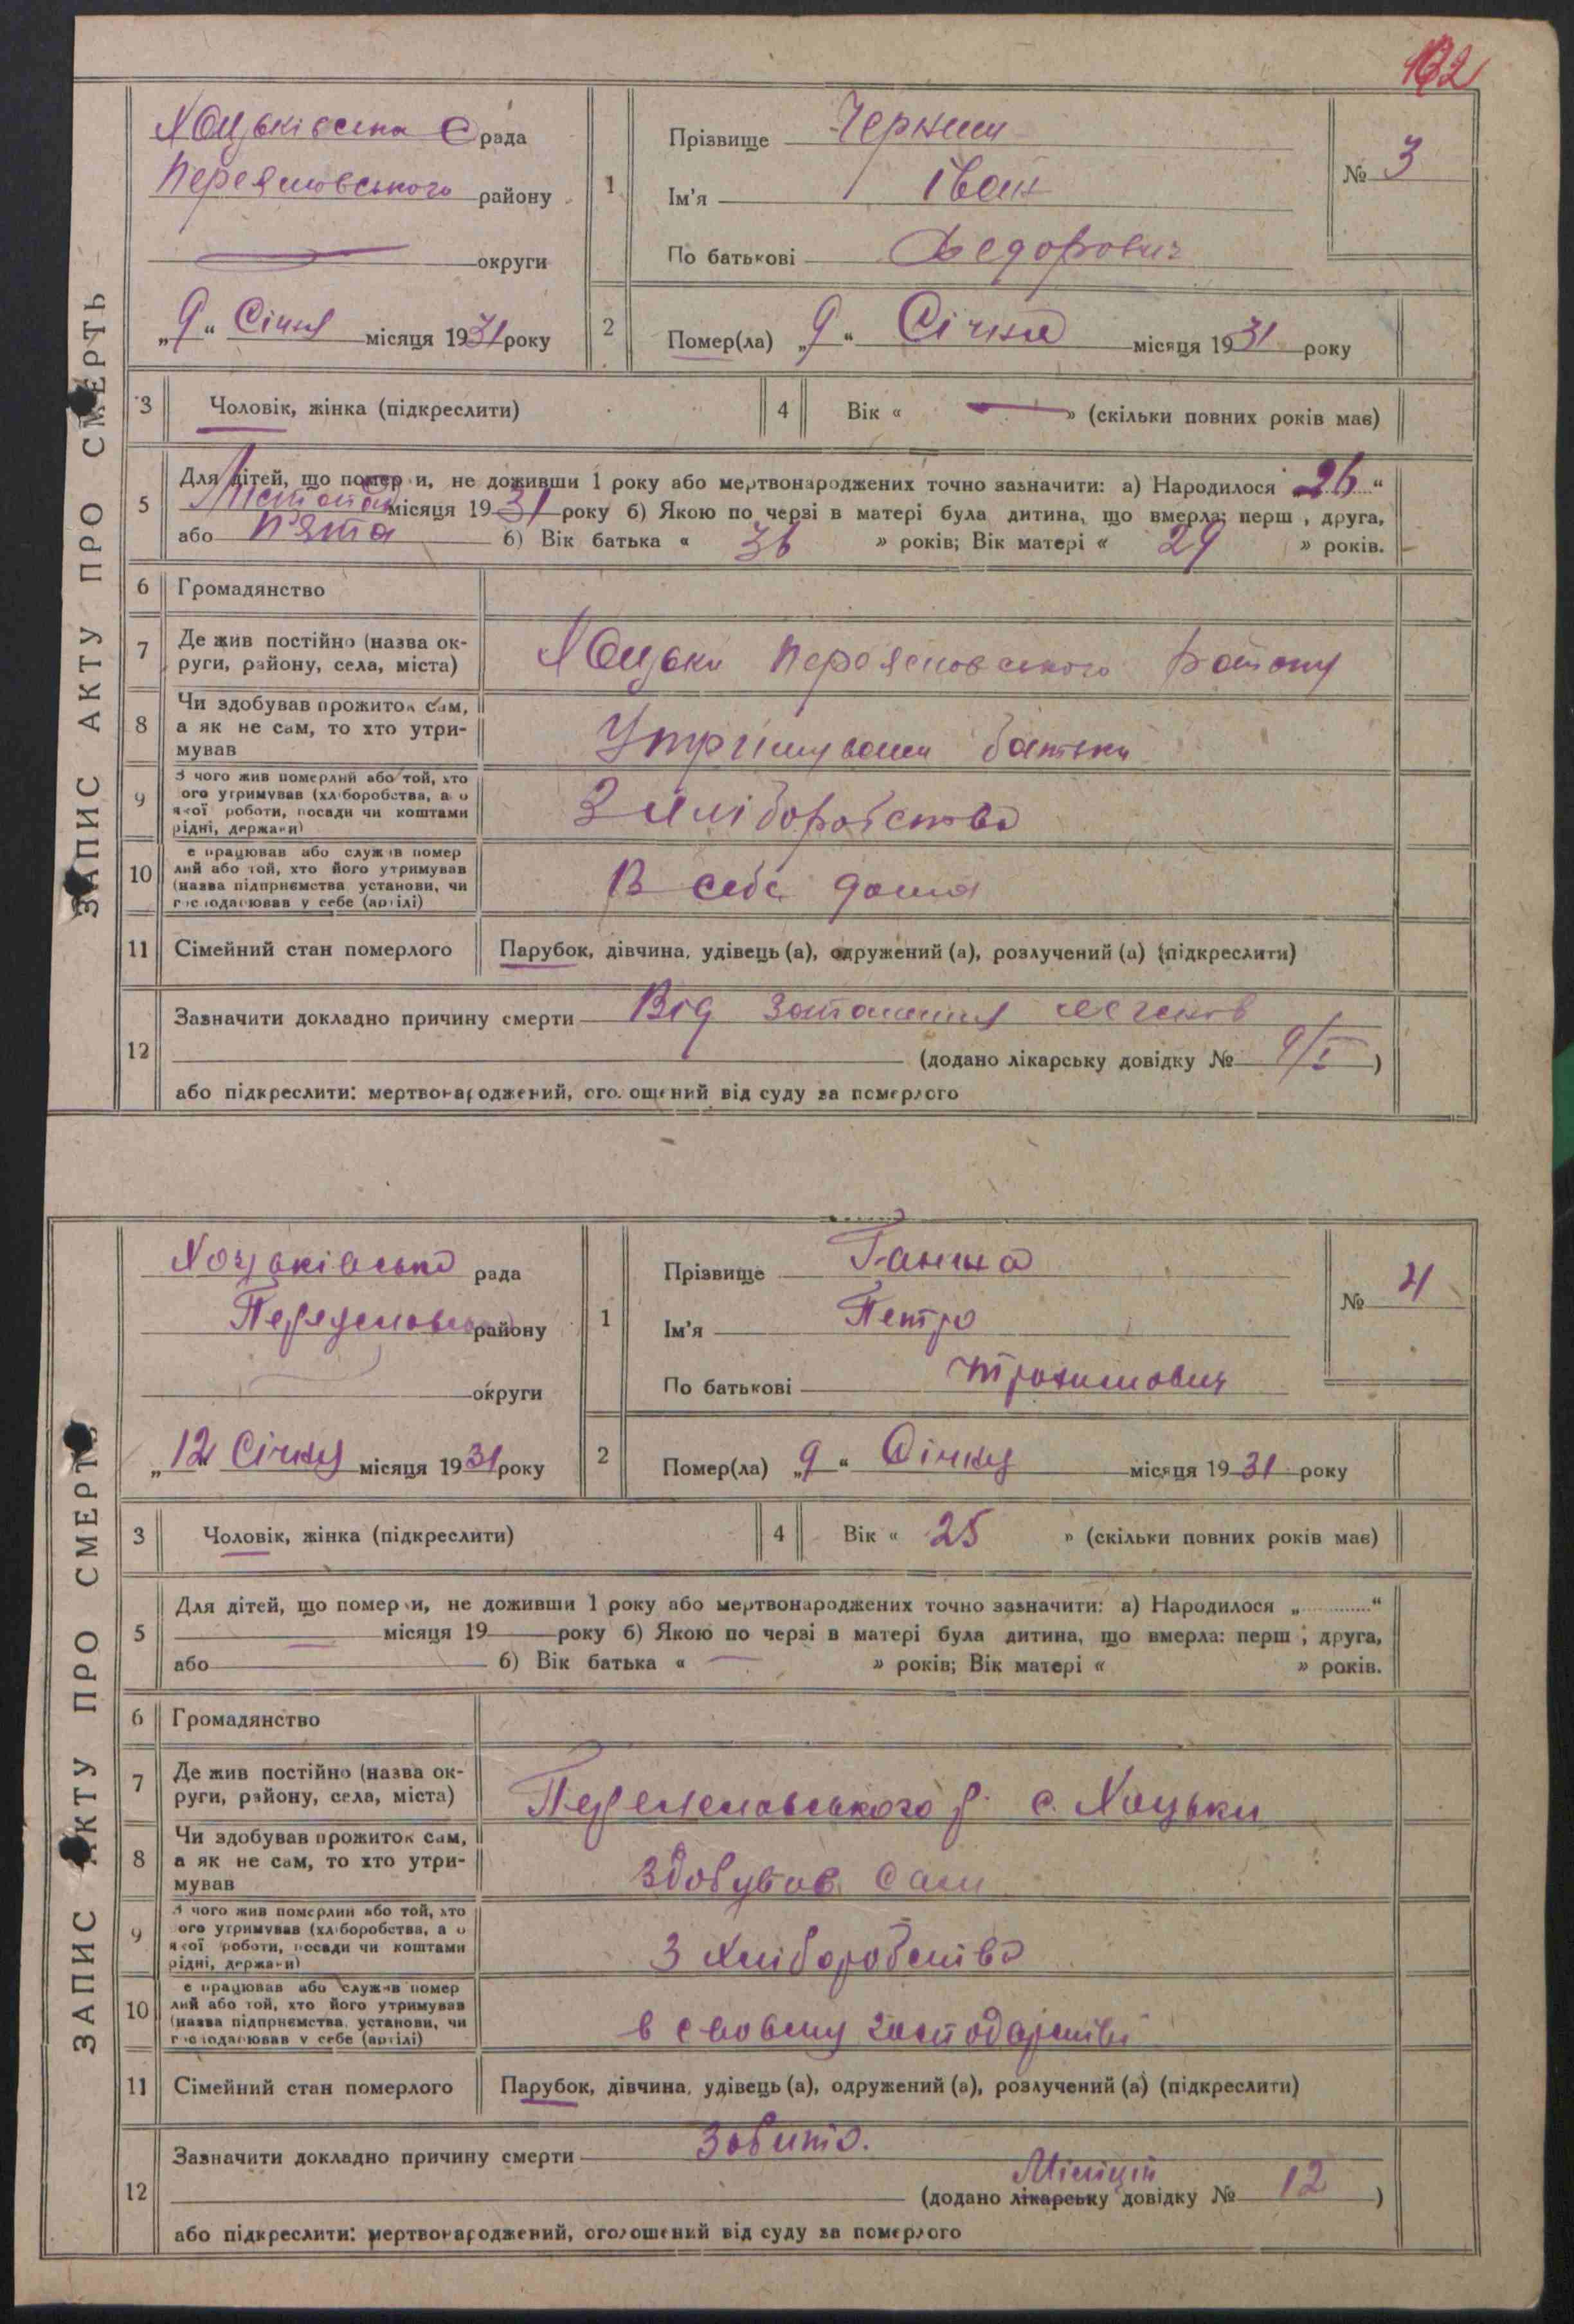 132
ЗАПИС АКТУ ПРО СМЕРТЬ
Хоцьківська С рада
Переяславського району
округи
„9“ Січня місяця 1931 року
1
Прізвище
Ім'я Іван
По батькові Федорович
№ 3
2
Помер(ла) „9“ Січня місяця 1931 року
3 Чоловік, жінка (підкреслити)
4 Вік « — » (скільки повних років має)
5 Для дітей, що померли, не доживши 1 року або мертвонароджених точно зазначити: а) Народилося „26“
Листопада місяця 1931 року б) Якою по черзі в матері була дитина, що вмерла: перша, друга,
або п'ята б) Вік батька « 36 » років; Вік матері « 29 » років.
6 Громадянство
7 Де жив постійно (назва ок-
руги, району, села, міста)
Хоцьки Переяславського району
8 Чи здобував прожиток сам,
а як не сам, то хто утри-
мував
Утримували батьки
9 З чого жив померлий або той, хто
його утримував (хліборобства, або
якої роботи, посади чи коштами
рідні, держави)
З хліборобства
10 Де працював або служив помер
лий або той, хто його утримував
(назва підприємства установи, чи
господарював у себе (артілі)
В себе дома
11 Сімейний стан померлого Парубок, дівчина, удівець (а), одружений (а), розлучений (а) (підкреслити)
12 Зазначити докладно причину смерти Від запалення легенів
(додано лікарську довідку № 9/I )
або підкреслити: мертвонароджений, оголошений від суду за померлого
ЗАПИС АКТУ ПРО СМЕРТЬ
Хоцьківська рада
Переяславського району
округи
„12“ Січня місяця 1931 року
1
Прізвище Ганжа
Ім'я Петро
По батькові
№ 4
2
Помер(ла) „9“ Січня місяця 1931 року
3 Чоловік, жінка (підкреслити)
4 Вік « 25 » (скільки повних років має)
5 Для дітей, що померли, не доживши 1 року або мертвонароджених точно зазначити: а) Народилося „ “
місяця 19 року б) Якою по черзі в матері була дитина, що вмерла: перша, друга,
або б) Вік батька « — » років; Вік матері « » років.
6 Громадянство
7 Де жив постійно (назва ок-
руги, району, села, міста)
Переяславського р. с. Хоцьки
8 Чи здобував прожиток сам,
а як не сам, то хто утри-
мував
Здобував сам
9 З чого жив померлий або той, хто
його утримував (хліборобства, або
якої роботи, посади чи коштами
рідні, держави)
З хліборобства
10 Де працював або служив помер
лий або той, хто його утримував
(назва підприємства, установи, чи
господарював у себе (артілі)
в своєму господарстві
11 Сімейний стан померлого Парубок, дівчина, удівець (а), одружений (а), розлучений (а) (підкреслити)
12 Зазначити докладно причину смерти Забито.
Міліції
(додано лікарську довідку № 12 )
або підкреслити: мертвонароджений, оголошений від суду за померлого